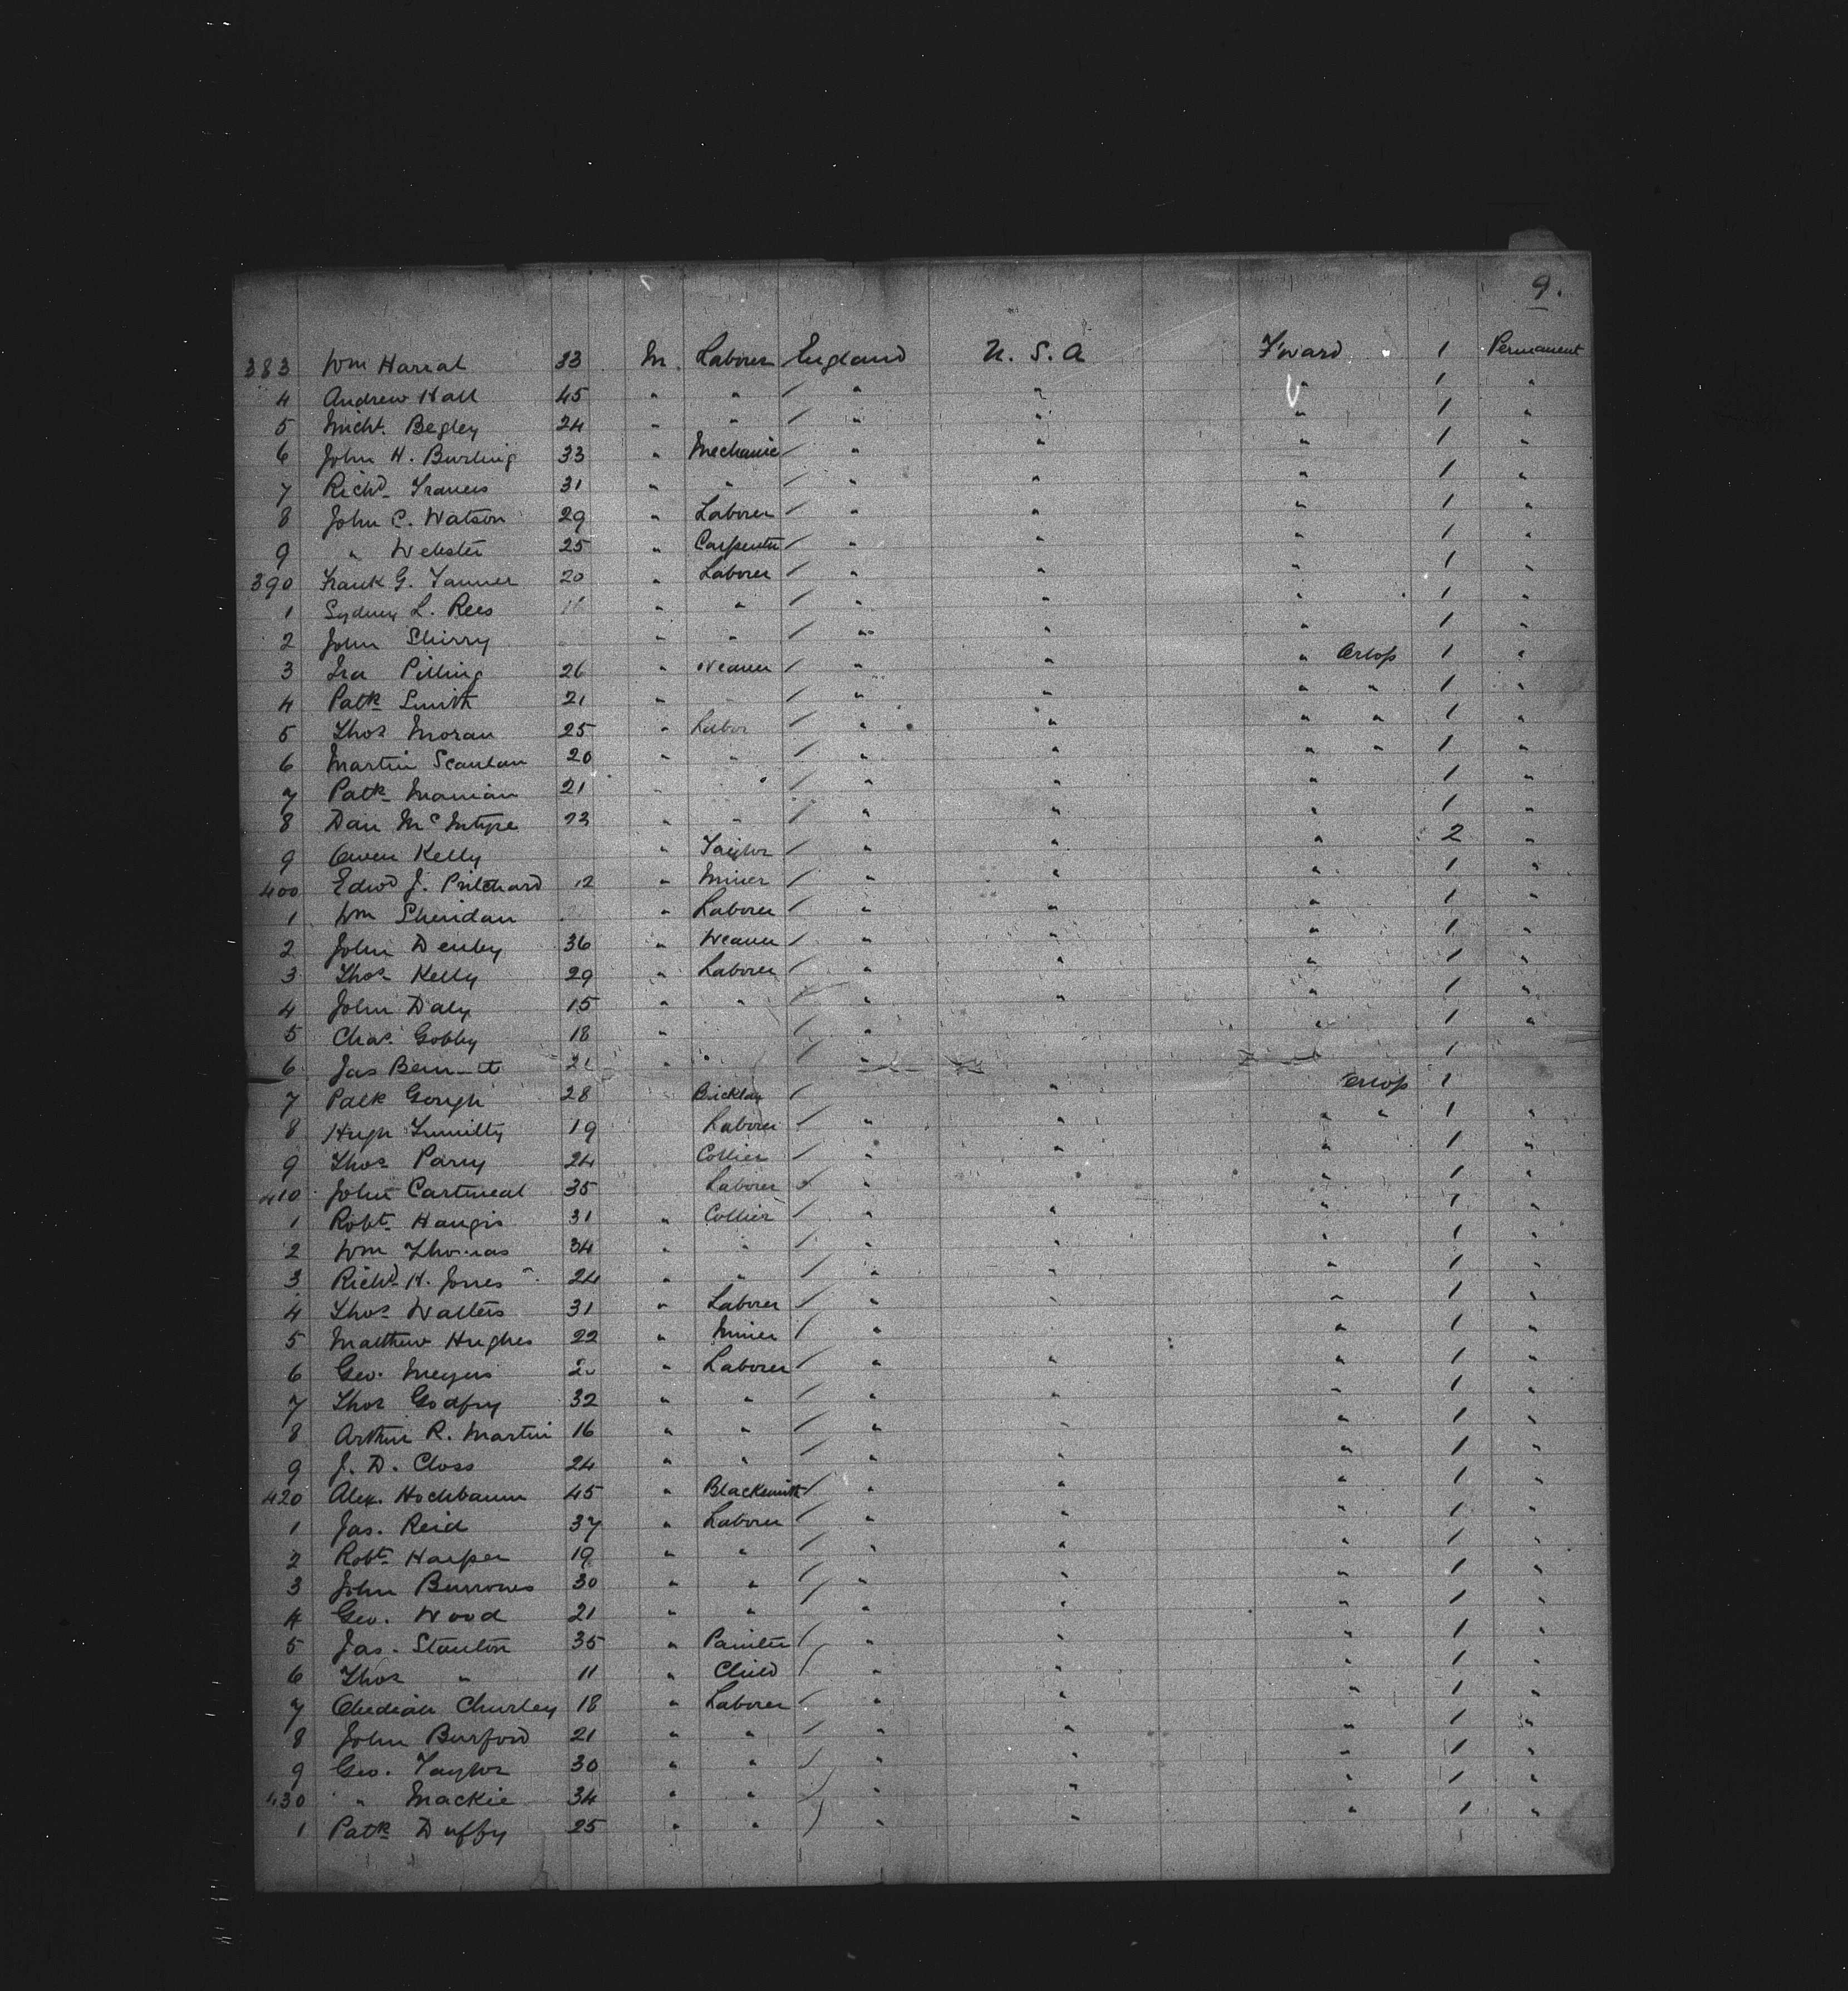 9.
383 Wm Harral 33 M. Laborer England U. S. A F'ward 1 Permanent
4 Andrew Hall 45 " " / " " " 1 "
5 Micht. Begley 24 " " / " " " 1 "
6 John H. Burling 33 " Mechanic / " " " 1 "
7 Richd. Travers 31 " " / " " " 1 "
8 John C. Watson 29 " Laborer / " " " 1 "
9 " Webster 25 " Carpenter / " " " 1 "
390 Frank G. Tanner 20 " Laborer / " " " 1 "
1 Sydney L. Rees " " / " " " 1 "
2 John Shirry " " / " " " 1 "
3 Ira Pilling 26 " Weaver / " " " Orlop 1 "
4 Patk Smith 21 " " / " " " " 1 "
5 Thos Moran 25 " Labor / " " " " 1 "
6 Martin Scanlan 20 " " / " " " " 1 "
7 Patk Manian 21 " " / " " " 1 "
8 Dan McIntyre 23 " " / " " " 1 "
9 Owen Kelly " Taylor / " " " 2 "
400 Edwd J. Pritchard 12 " Miner / " " " 1 "
1 Wm Sheridan " Laborer / " " " 1 "
2 John Denby 36 " Weaver / " " " 1 "
3 Thos Kelly 29 " Laborer / " " " 1 "
4 John Daly 15 " " / " " " 1 "
5 Chas. Gobby 18 " / " " 1 "
6 Jas 21 " " / " 1
7 Patk Gough 28 Bricklay / " Orlop 1
8 Hugh 19 Laborer / " " " " 1 "
9 Thos Parry 24 Collier / " " " 1 "
410 John Cartmeal 35 Laborer / " " 1 "
1 Robt Haugis 31 " Collier / " " " 1 "
2 Wm Thomas 34 " " / " " " 1 "
3 Richd H. Jones 24 " " / " " " 1 "
4 Thos Walters 31 " Laborer / " " " 1 "
5 Matthew Hughes 22 " Miner / " " 1 "
6 Geo. Meyers " Laborer / " " " 1 "
7 Thos Godfry 32 " " / " " " 1 "
8 Arthur R. Martin 16 " " / " " " 1 "
9 J. D. Closs 24 " " / " " " 1 "
420 Alex. Hochbaum 45 " Blacksmith / " " " 1 "
1 Jas. Reid 37 " Laborer / " " " 1 "
2 Robt Harper 19 " " / " " " 1 "
3 John Burrows 30 " " / " " " 1 "
4 Geo. Wood 21 " " / " " " 1 "
5 Jas. Stanton 35 " Painter / " " " 1 "
6 Thos " 11 " Child / " " " 1 "
7 Obediah Churley 18 " Laborer / " " " 1 "
8 John Burford 21 " " / " " " 1 "
9 Geo. Taylor 30 " " / " " " 1 "
430 " Mackie 34 " " / " " " 1 "
1 Patk Duffy 25 " " / " " " 1 "